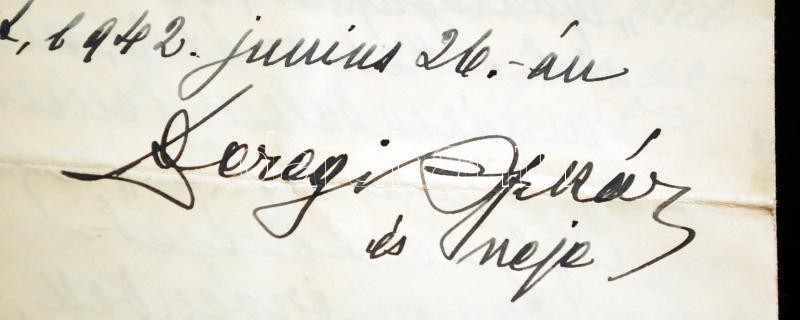 1942. junius 26.-án
Beregi Oszkár
és neje